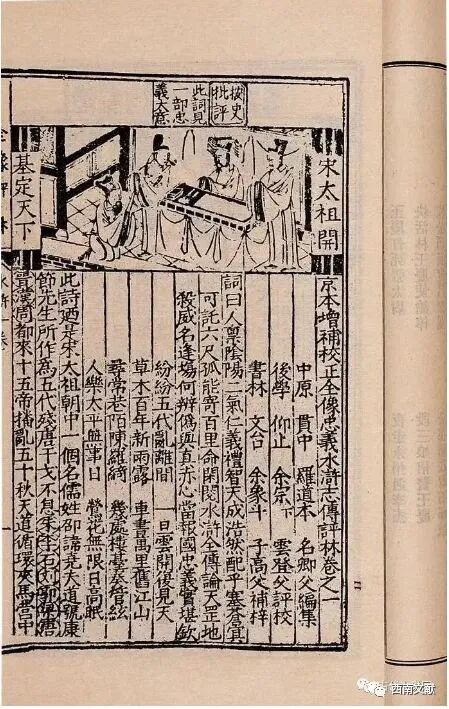 按史
批評
此詞見
一部忠
義大意
宋太祖開
基定天下
京本增補校正全像忠義水滸志傳評林卷之一
中原 貫中 羅道本 名卿父編集
後學 仰止 余宗下 雲登父評校
書林 文台 余象斗 子高父補梓
詞曰人禀陰陽二氣仁義禮智天成浩然配乎塞蒼冥
可託六尺孤能寄百里命閑閱水滸全傳論天罡地
殺威名逢場何辨僞與真赤心當報國忠義實堪欽
紛紛五代亂離間 一旦雲開復見天
草木百年新雨露 車書萬里舊江山
尋常巷陌陳羅綺 幾處樓臺奏管絃
人樂太平無事日 鶯花無限日高眠
此詩迺是宋太祖朝中一個名儒姓邵諱堯夫道號康
節先生所作為五代殘唐干戈不息朱李石刘郭梁唐
晋漢周都來十五帝播亂五十秋天道循環夾馬營中
全像評林
西南文献